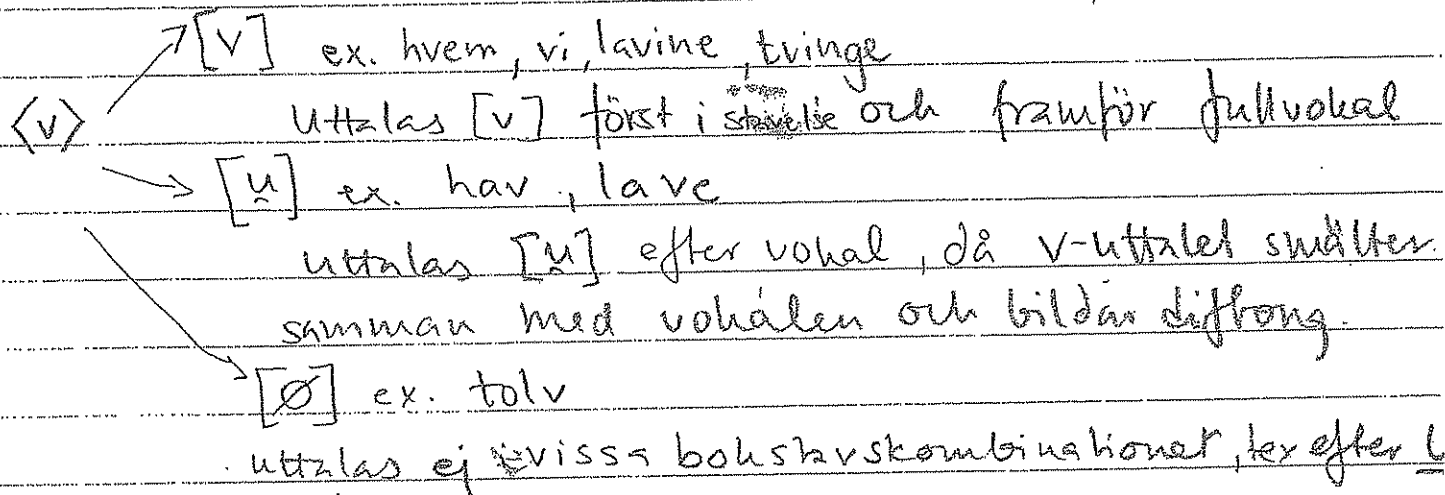 [v] ex. hvem, vi, lavine, tvinge
<v> uttalas [v] först i stavelse och framför fullvokal
[u̯] ex. hav, lave
uttalas [u̯] efter vokal, då v-uttalet smälter
samman med vokalen och bildar diftong.
[Ø] ex. tolv
uttalas ej i vissa bokstavskombinationer, tex efter l